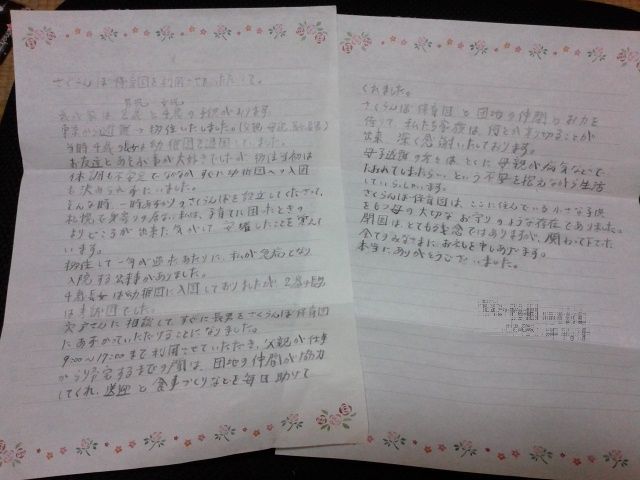 さくらんぼ保育園を利用させていただいて。
男児 女児
我が家は2歳と4歳の子供があります。
東京から避難し移住したしました。(父親、母親、長女、長男)
当時4歳の長女は幼稚園を退園していました。
お友達とあそぶ事が大好きでしたが 移住当初は
体調も不安定でなかなか すぐに幼稚園への入園
も決められずにいました。
そんな時、一時あずかりのさくらんぼを設立してくださって、
札幌で身寄りのない私は、子育てに困ったときの
よりどころが出来た気がして 安堵したことを覚えて
います。
移住して一年が過ぎたあたりに、私が急病となり
入院する出来事がありました。
4歳長女は幼稚園に入園しておりましたが 2歳の長男
は未就園でした。
さんに相談して、すぐに長男をさくらんぼ保育園
にあずかっていただけることになりました。
9:00〜17:00まで利用させていただき、父親が仕事
から帰宅するまでの間は、団地の仲間が協力
してくれ、送迎と食事づくりなどを毎日助けて
くれました。
さくらんぼ保育園と団地の仲間のお力を
借りて、私たち家族は、何とかのり切ることが
出来、深く感謝いたしております。
母子避難の方々は とくに 母親が病気などで
たおれてしまったら、という不安を抱えながら生活
していらっしゃいます。
さくらんぼ保育園は、ここに住んでいる小さな子供
をもつ母の大切なお守りのような存在でありました。
閉園は、とても残念ではありますが、関わって下さった
全てのみなさまに、お礼を申しあげます。
本当にありがとうございました。